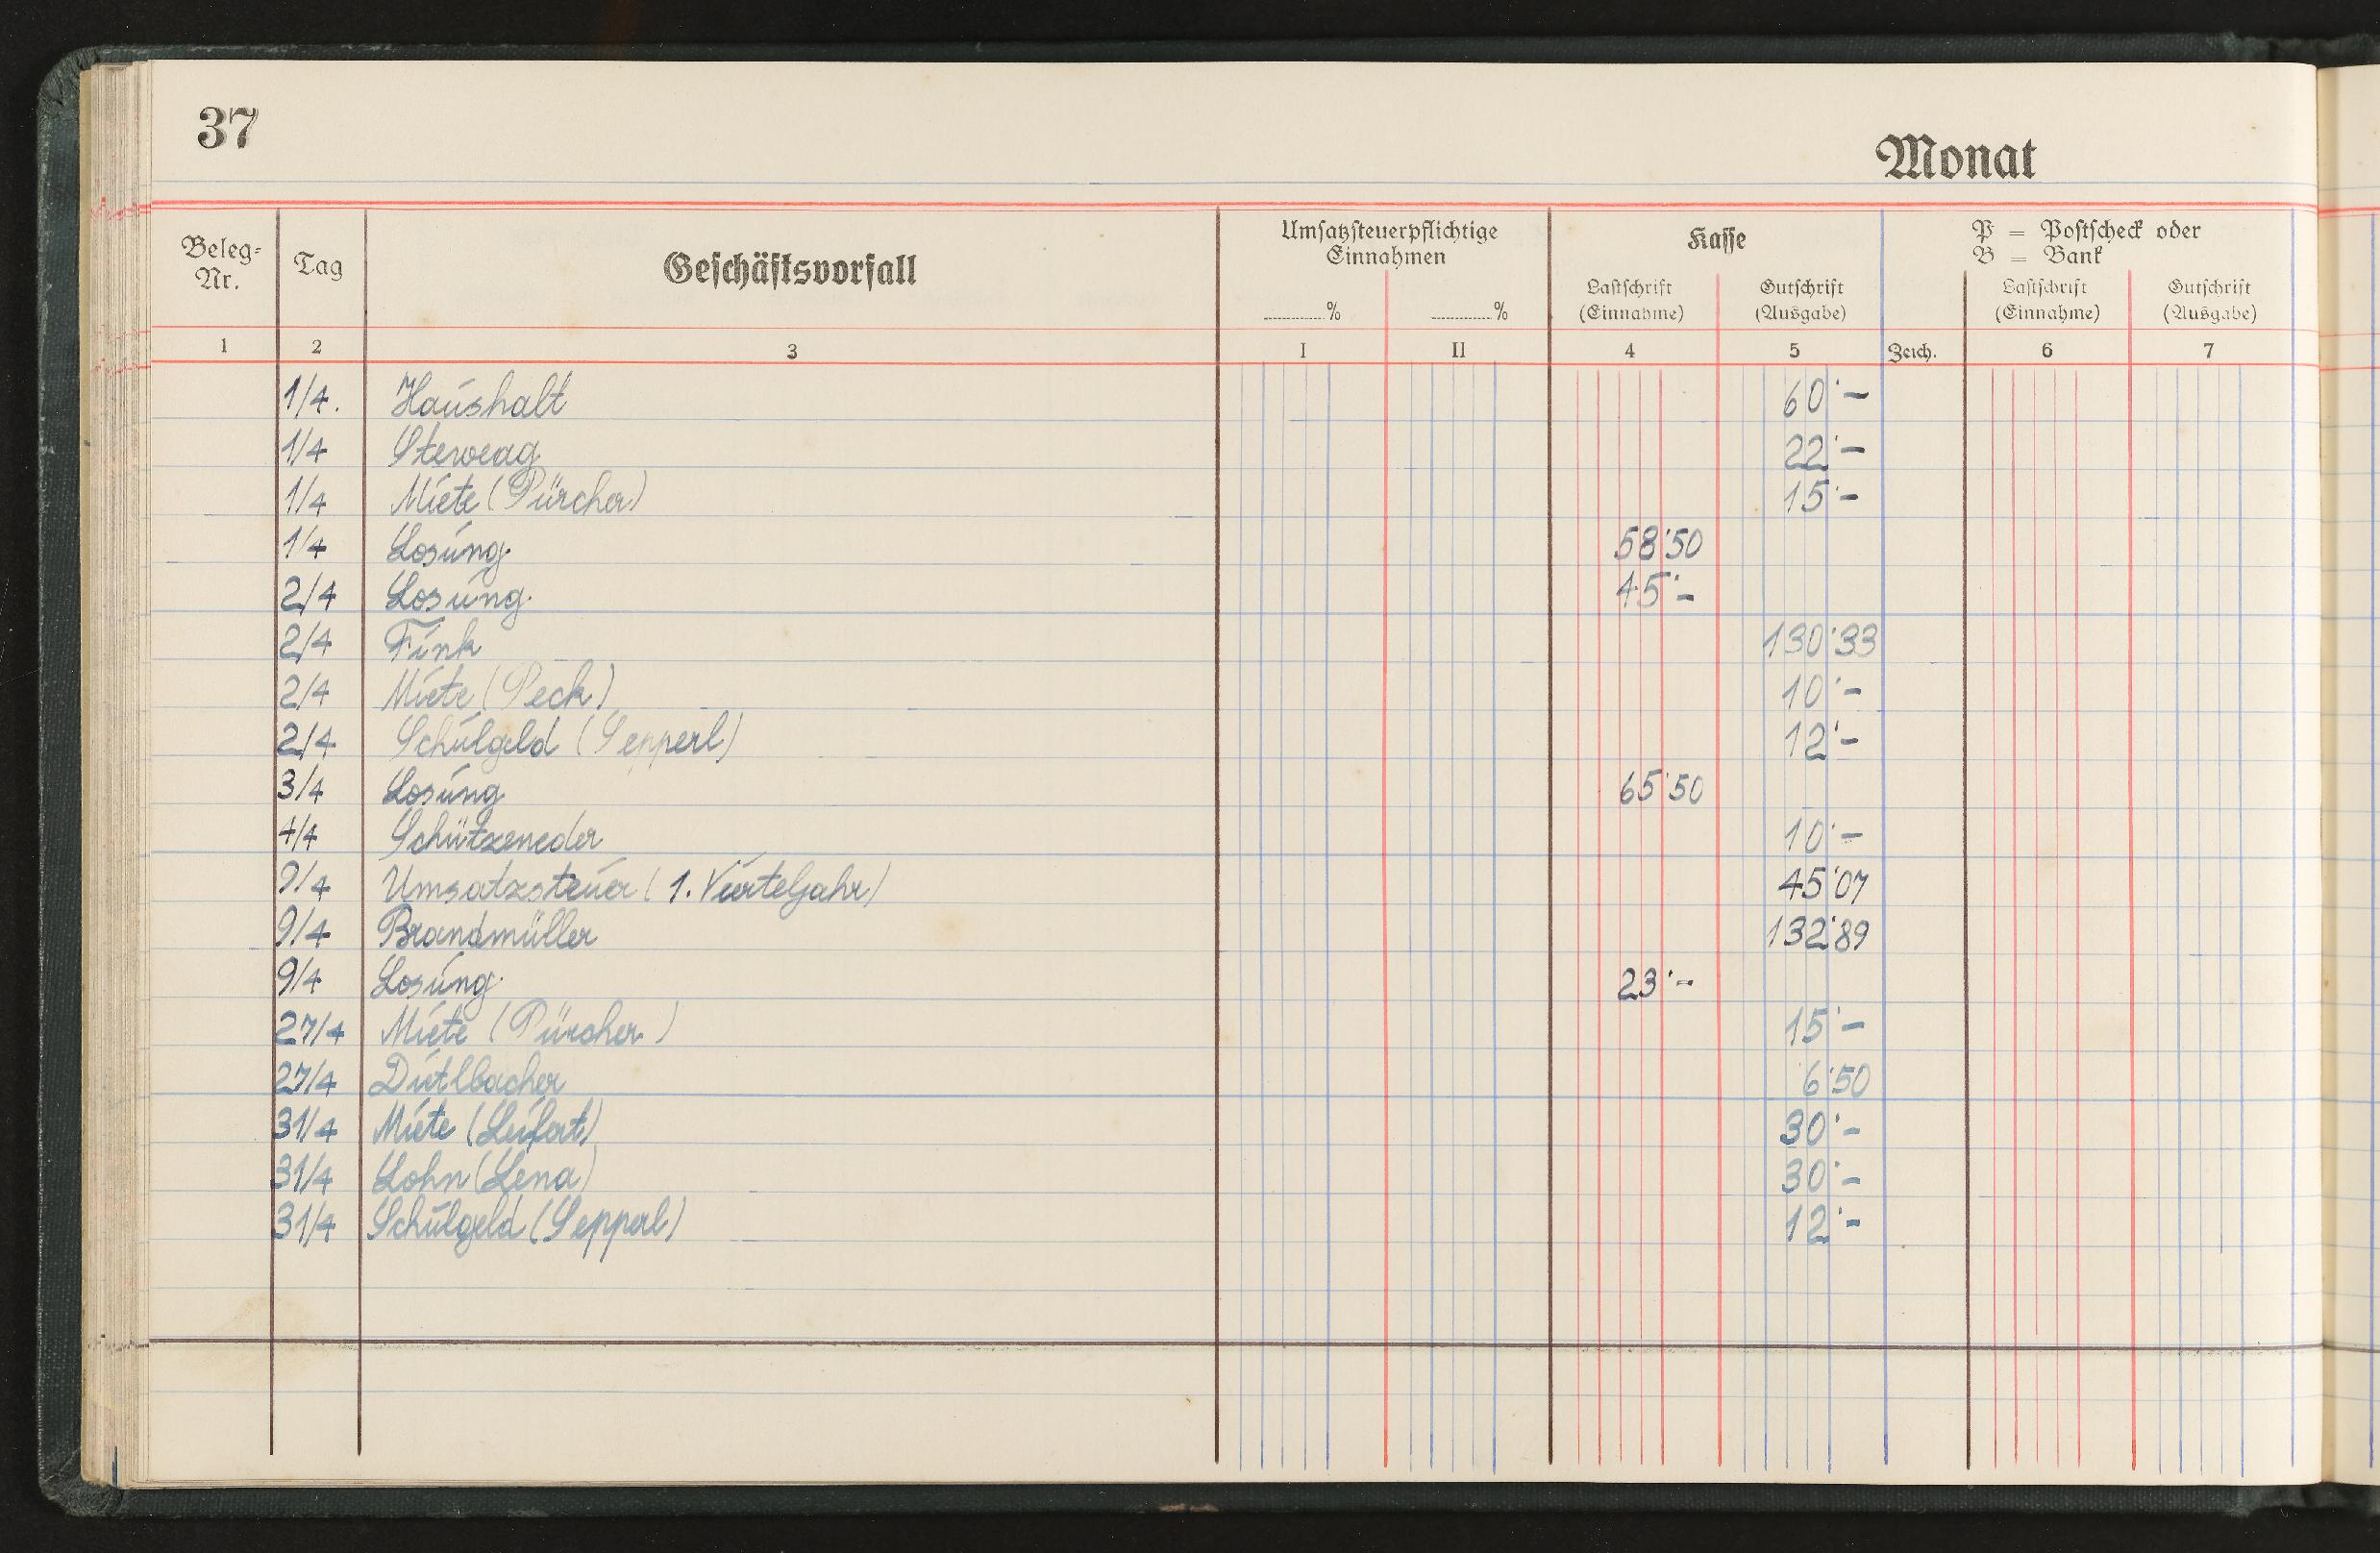 37
Monat
Beleg-Nr. Tag Geschäftsvorfall Umsatzsteuerpflichtige Einnahmen Kasse P = Postscheck oder B = Bank
% % Lastschrift (Einnahme) Gutschrift (Ausgabe) Lastschrift (Einnahme) Gutschrift (Ausgabe)
1 2 3 I II 4 5 Zeich. 6 7
1/4. Haushalt 60'-
1/4 Steweag 22'-
1/4 Miete (Pürcher) 15'-
1/4 Losung 58'50
2/4 Losung 45'-
2/4 Fink 130'33
2/4 Miete (Peck) 10'-
2/4 Schulgeld (Sepperl) 12'-
3/4 Losung 65'50
4/4 Schützeneder 10'-
9/4 Umsatzsteuer (1. Vierteljahr) 45'07
9/4 Brandmüller 132'89
9/4 Losung 23'-
27/4 Miete (Pürcher) 15'-
27/4 Dutlbacher 6'50
31/4 Miete (Leifert) 30'-
31/4 Lohn (Lena) 30'-
31/4 Schulgeld (Sepperl) 12'-